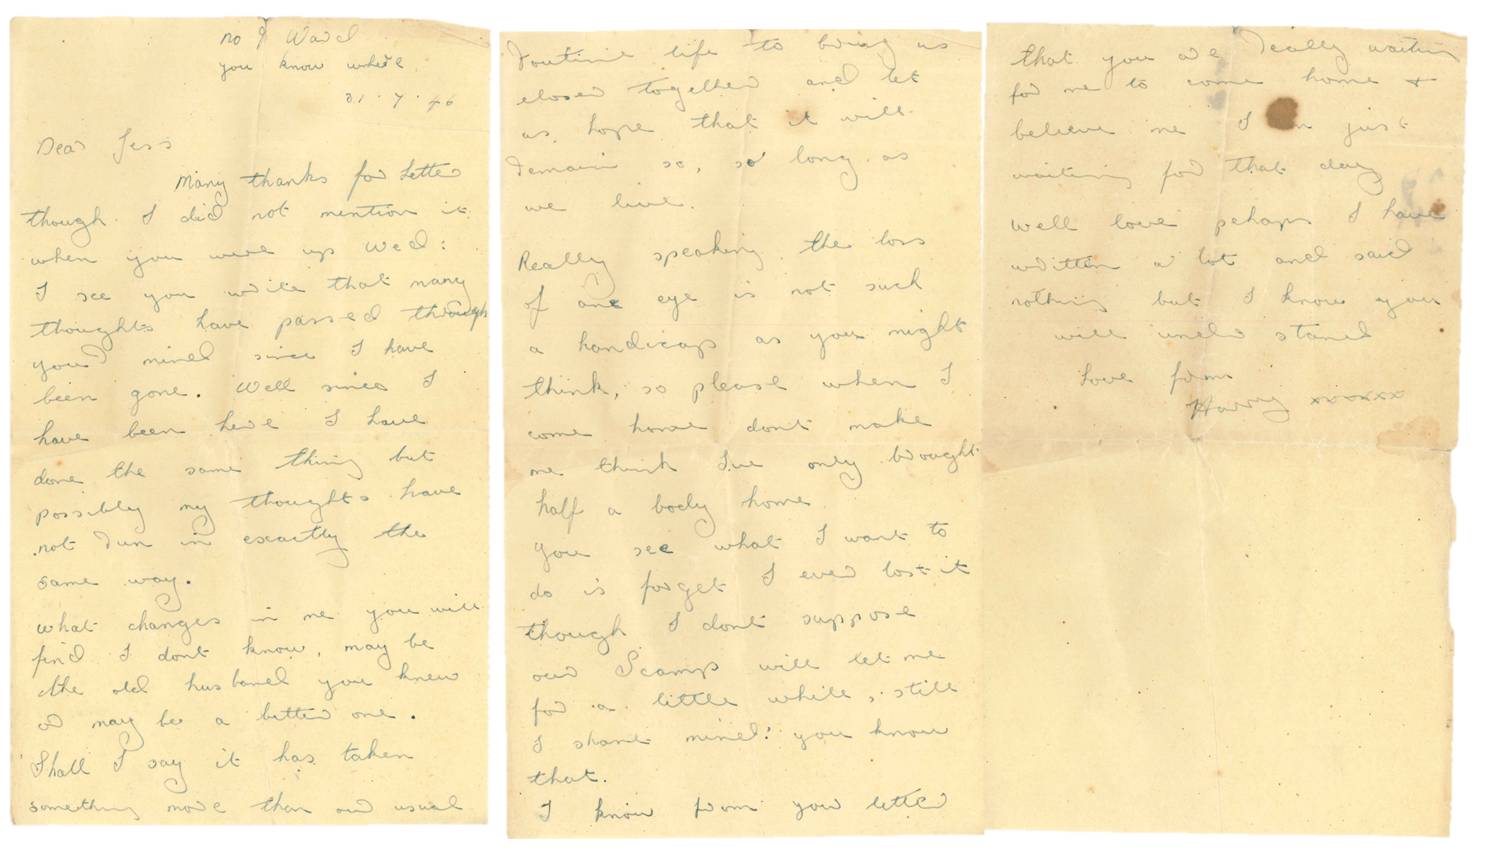 no 9 Ward
you know where
31.7.46
Dear Jess
Many thanks for letter
though I did not mention it
when you were up Wed:
I see you write that many
thoughts have passed through
your mind since I have
been gone. Well since I
have been here I have
done the same thing but
possibly my thoughts have
not run in exactly the
same way.
what changes in me you will
find I dont know, may be
the old husband you knew
or may be a better one.
Shall I say it has taken
something more than our usual
routine life to bring us
closer together and let
us hope that it will
remain so, so long as
we live.
Really speaking the loss
of one eye is not such
a handicap as you might
think, so please when I
come home dont make
me think I've only brought
half a body home
you see what I want to
do is forget I ever lost it
though I dont suppose
our Scamp will let me
for a little while, still
I shant mind: you know
that.
I know from your letter
that you are really waiting
for me to come home +
believe me I just
waiting for that day
well love pehaps I have
written a lot and said
nothing but I know you
will under stand
Love from
Harry xxxxxxx